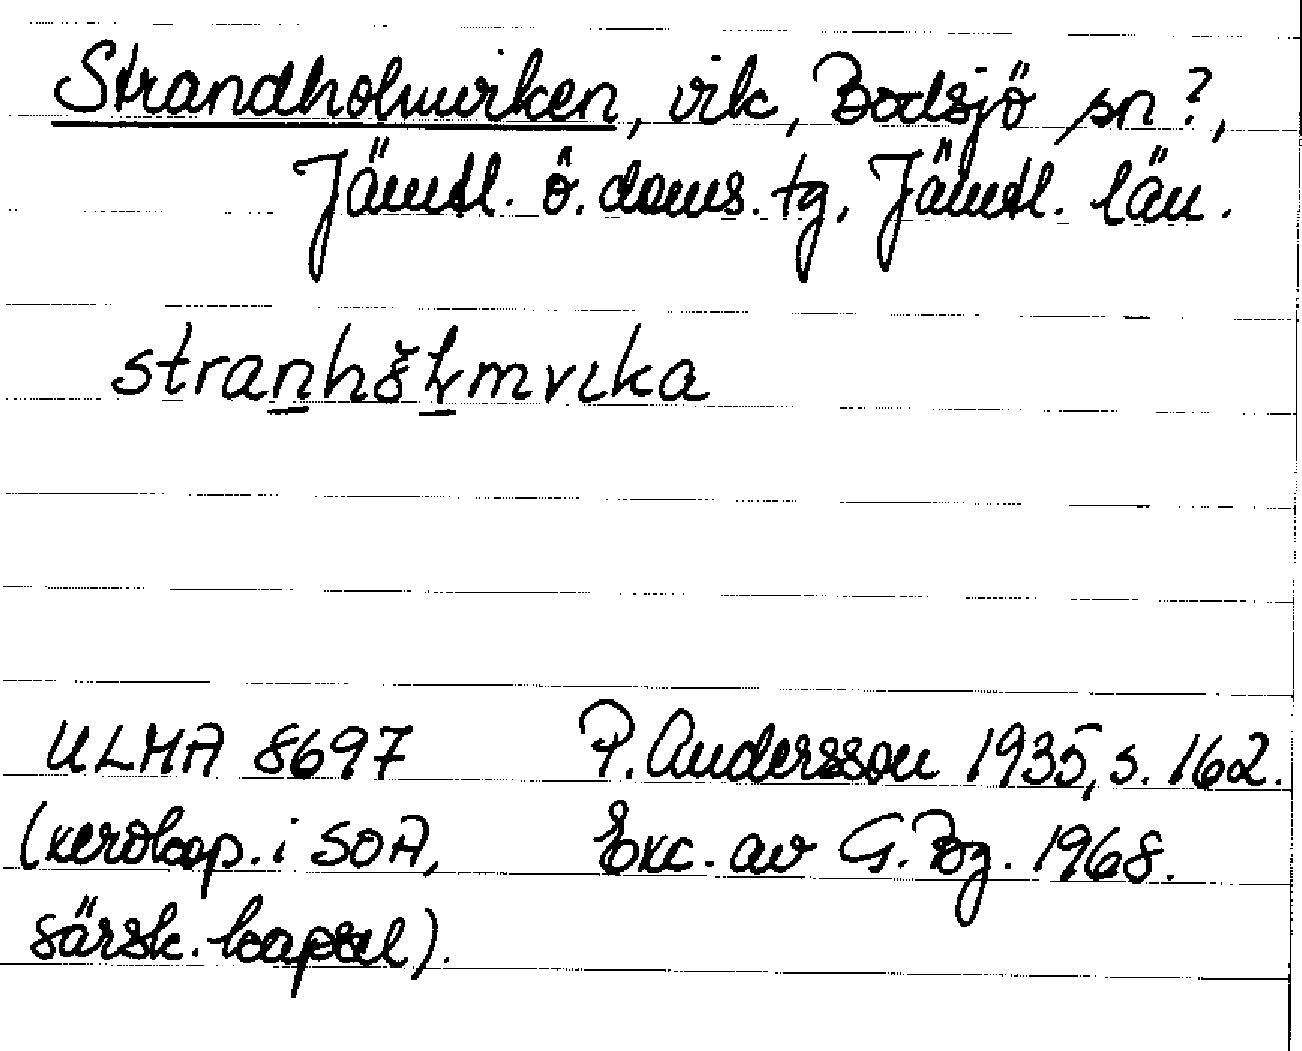 Strandholmviken, vik, Bodsjö sn?,
Jämtl. ö. doms. tg, Jämtl. län.
stranho̯lmvıka
ULMA 8697 P. Andersson 1935, s. 162.
(xeroxkop. i SOA, Exc. av G. Bg. 1968.
särsk. kapsel).